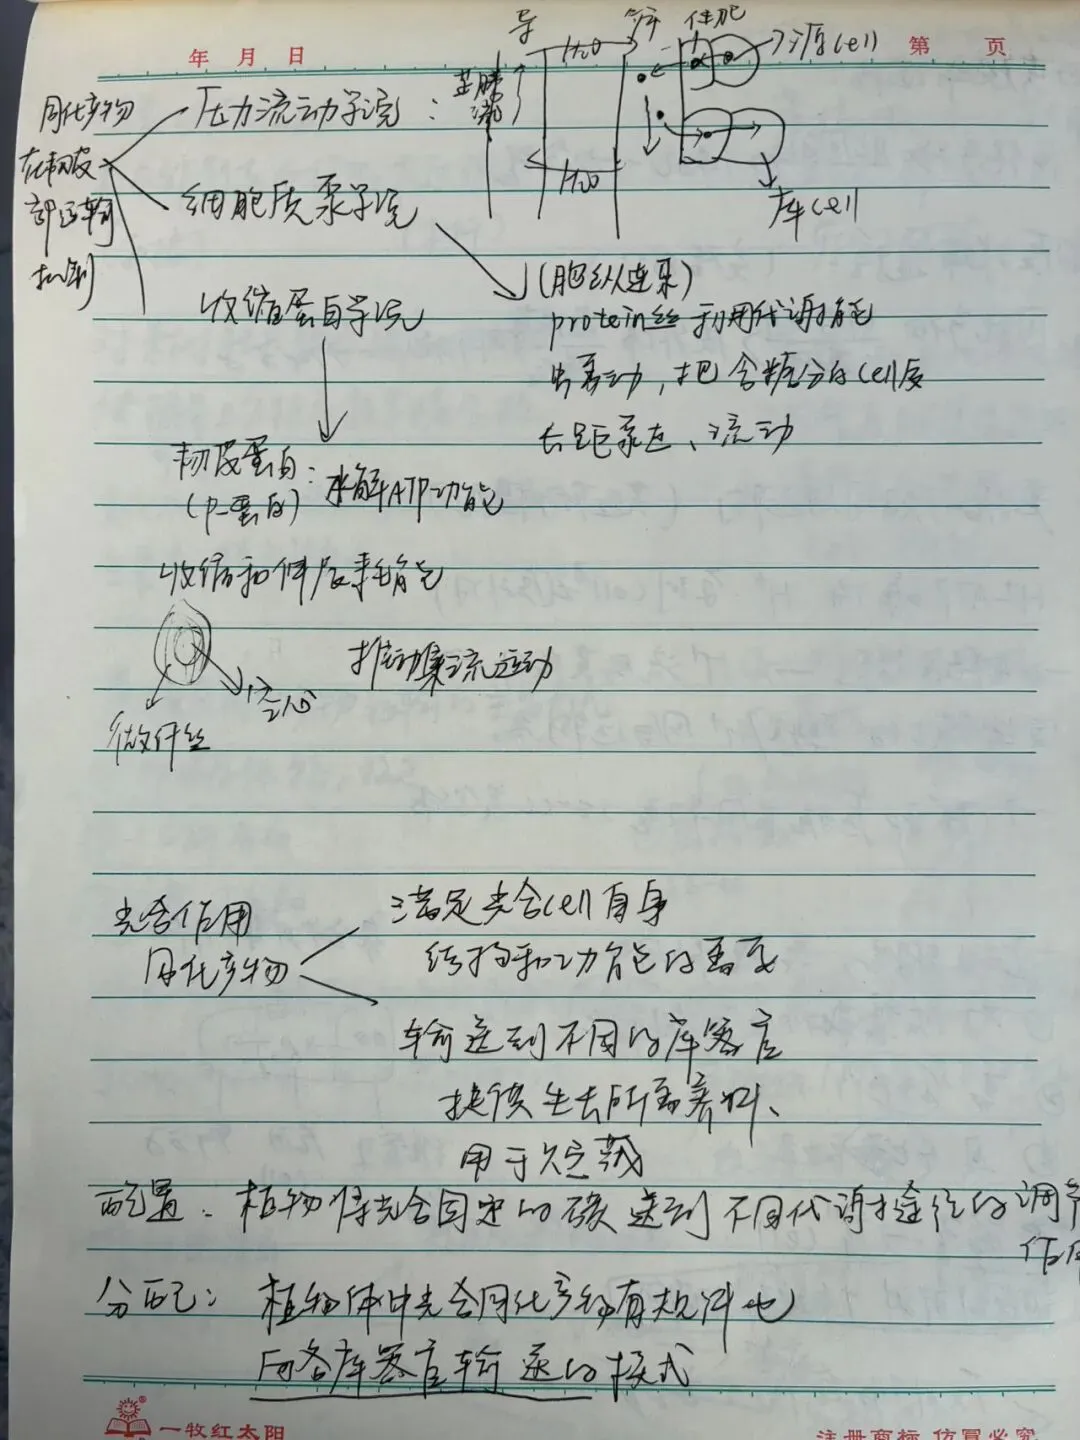 年 月 日
第 页
导 筛 伴胞
H2O
源cell
蒸腾流
H2O
库cell
同化产物
在韧皮
部运输
机制
压力流动学说：
细胞质泵学说
(胞纵连束)
protein丝利用代谢能
蠕动，把含糖分的cell质
长距泵走、流动
收缩蛋白学说
韧皮蛋白：水解ATP功能
(P-蛋白)
收缩和伸展耗能
推动集流运动
空心
微纤丝
光合作用
同化产物
满足光合cell自身
结构和功能的需要
输送到不同的库器官
提供生长所需养料、
用于贮藏
配置：植物将光合固定的碳送到不同代谢途径的调节
作用
分配：植物体中光合同化产物有规律地
向各库器官输送的模式
一牧红太阳
注册商标 仿冒必究